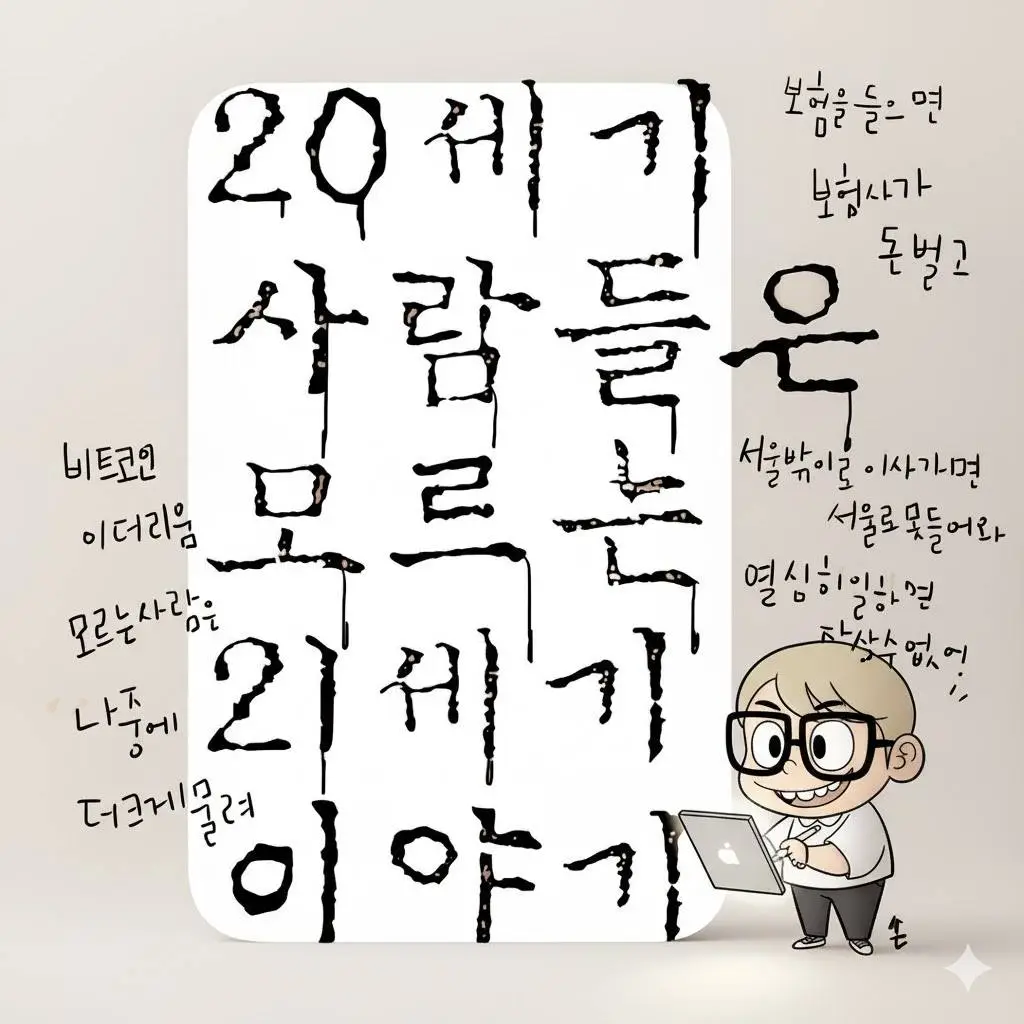 20세기
사람들은
모르는
21세기
이야기
보험을 들으면
보험사가
돈 벌고
서울밖이로 이사가면
서울로 못들어와
열심히 일하면
잘살수 없어!
비트코인
이더리움
모르는 사람은
나중에
더크게 물려